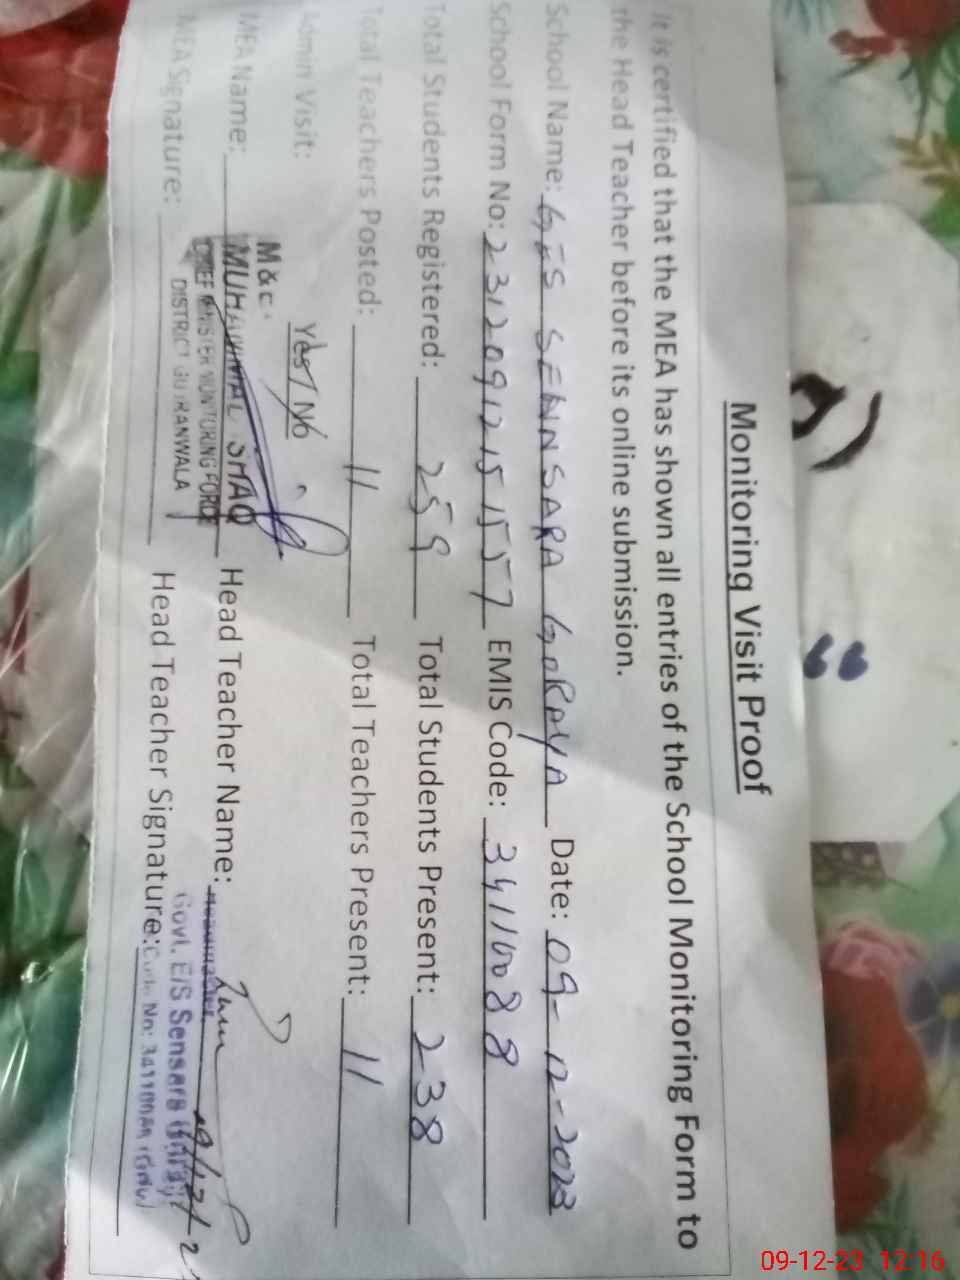 Monitoring Visit Proof
It is certified that the MEA has shown all entries of the School Monitoring Form to
the Head Teacher before its online submission.
School Name: GES SENNSARA GORAYA Date: 09-12-2023
School Form No: 231209121515157 EMIS Code: 34110088
Total Students Registered: 259 Total Students Present: 238
Total Teachers Posted: 11 Total Teachers Present: 11
Admin Visit: Yes/No
MEA Name: Head Teacher Name:
MEA Signature: Head Teacher Signature:
M & E
MUHAMMAD
CHIEF MINISTER MONITORING FORCE
DISTRICT GUJRANWALA
Govt. E/S Sensara
Code No: 34110088
09-12-23 12:16